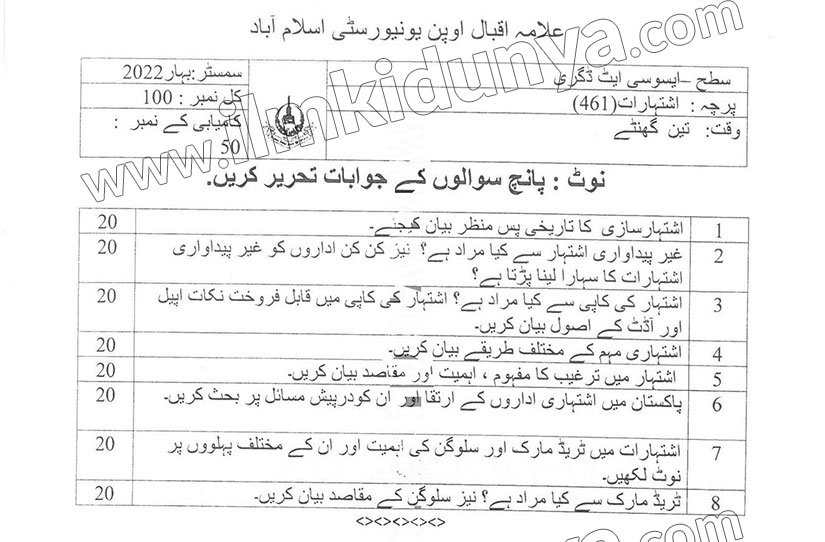 علامہ اقبال اوپن یونیورسٹی اسلام آباد
سطح –ایسوسی ایٹ ڈگری
سمسٹر:بہار2022
پرچہ : اشتہارات(461)
کل نمبر : 100
وقت: تین گھنٹے
کامیابی کے نمبر :
50
نوٹ : پانچ سوالوں کے جوابات تحریر کریں۔
1 اشتہارسازی کا تاریخی پس منظر بیان کیجئے۔ 20
2 غیر پیداواری اشتہار سے کیا مراد ہے؟ نیز کن کن اداروں کو غیر پیداواری 20
اشتہارات کا سہارا لینا پڑتا ہے؟
3 اشتہار کی کاپی سے کیا مراد ہے؟ اشتہار کی کاپی میں قابل فروخت نکات اپیل 20
اور آڈٹ کے اصول بیان کریں۔
4 اشتہاری مہم کے مختلف طریقے بیان کریں۔ 20
5 اشتہار میں ترغیب کا مفہوم ، اہمیت اور مقاصد بیان کریں۔ 20
6 پاکستان میں اشتہاری اداروں کے ارتقا اور ان کودرپیش مسائل پر بحث کریں۔ 20
7 اشتہارات میں ٹریڈ مارک اور سلوگن کی اہمیت اور ان کے مختلف پہلووں پر 20
نوٹ لکھیں۔
8 ٹریڈ مارک سے کیا مراد ہے؟ نیز سلوگن کے مقاصد بیان کریں۔ 20
<><><><><>
www.ilmkidunya.com
www.ilmkidunya.com